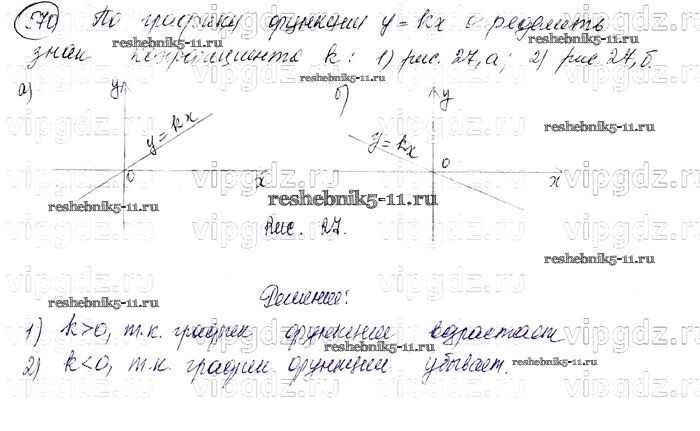 570) По графику функции y = kx определить
знак коэффициента k: 1) рис. 27, а; 2) рис. 27, б.
а) y б) y
y = kx y = kx
0 x 0 x
Рис. 27.
Решение:
1) k>0, т.к. график функции возрастает
2) k<0, т.к. график функции убывает.
reshebnik5-11.ru
vipgdz.ru